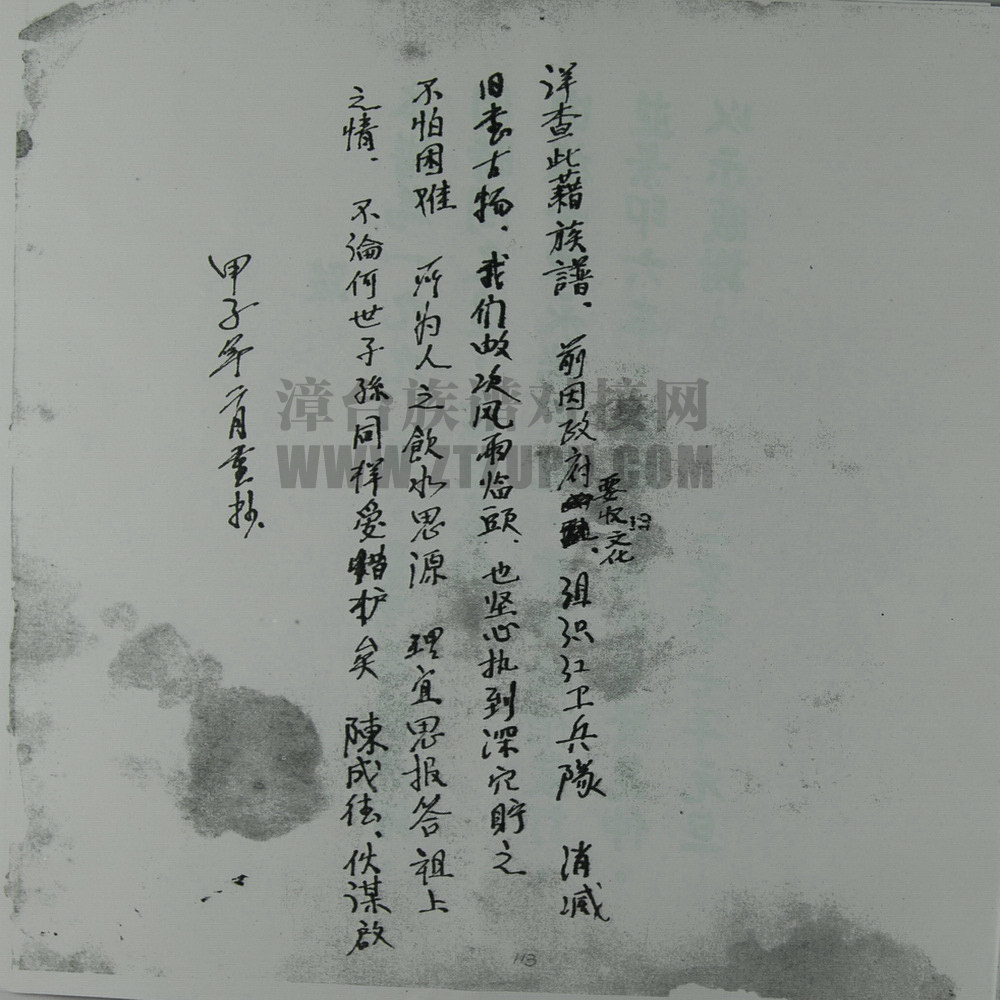 详查此藉族譜、前因政府要收旧文化、沮织红卫兵隊 消减
旧书古物、我们故次风雨临頭、也坚心执到深穴貯之
不怕困难 所为人之飲水思源 理宜思报答祖上
之情、不論何世子孫同样爱惜护矣 陳成德、伙謀啟
甲子年 月重抄
漳台族谱对接网
WWW.ZTZUPU.COM
113